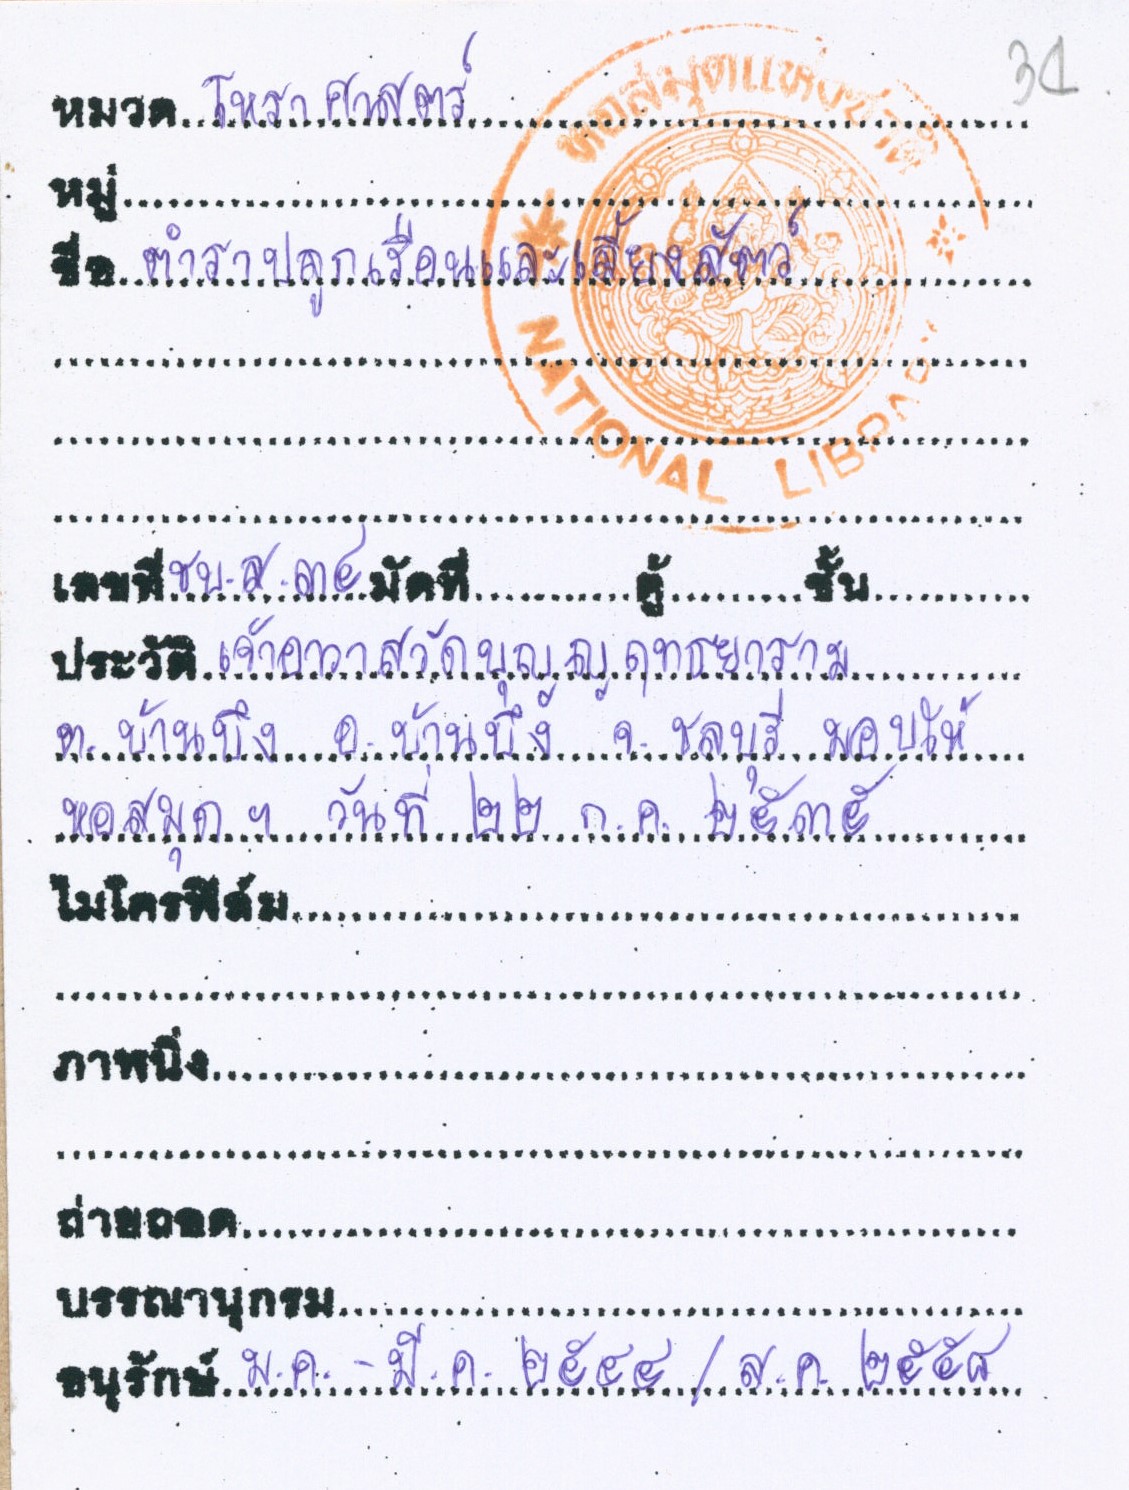 34
หอสมุดแห่งชาติ
หมวด โหราศาสตร์
หมู่
ชื่อ ตำราปลูกเรือนและเลี้ยงสัตว์
NATIONAL LIBRARY
เลขที่ ชบ.ส.๓๔ มัดที่ ตู้ ชั้น
ประวัติ เจ้าอาวาสวัดบุญญฤทธยาราม
ต.บ้านบึง อ.บ้านบึง จ.ชลบุรี มอบให้
หอสมุดฯ วันที่ ๒๒ ก.ค. ๒๕๓๕
ไมโครฟิล์ม
ภาพนิ่ง
ถ่ายถอด
บรรณานุกรม
อนุรักษ์ ม.ค. - มี.ค. ๒๕๔๔ / ส.ค. ๒๕๕๘